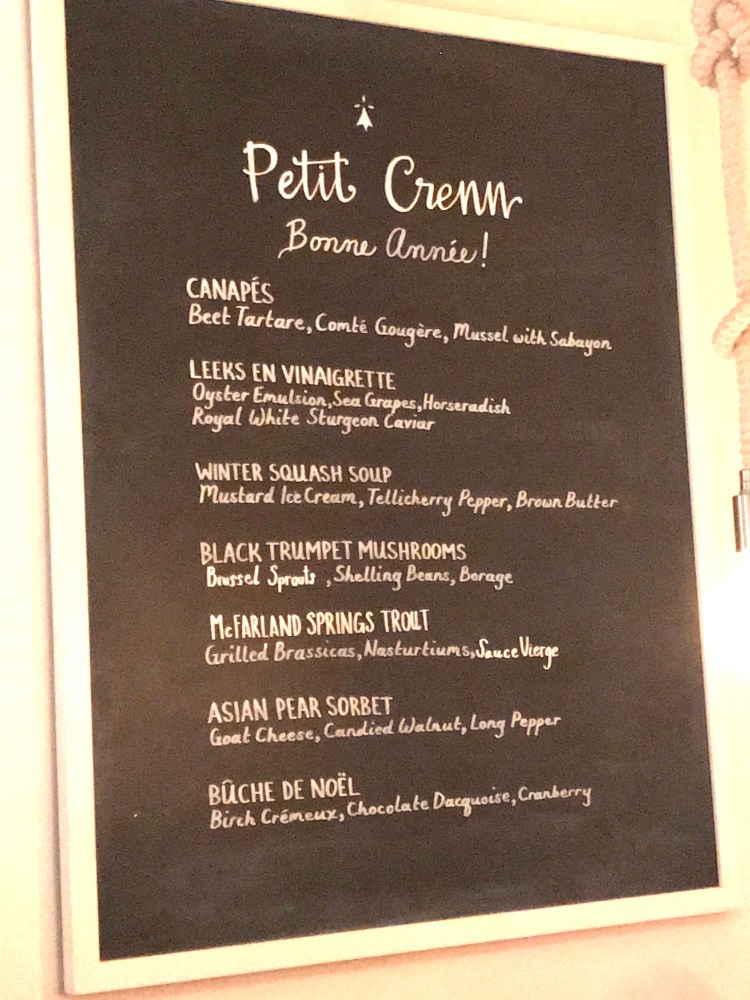 Petit Crenn
Bonne Année!
CANAPÉS
Beet Tartare, Comté Gougère, Mussel with Sabayon
LEEKS EN VINAIGRETTE
Oyster Emulsion, Sea Grapes, Horseradish
Royal White Sturgeon Caviar
WINTER SQUASH SOUP
Mustard Ice Cream, Tellicherry Pepper, Brown Butter
BLACK TRUMPET MUSHROOMS
Brussel Sprouts , Shelling Beans, Borage
McFARLAND SPRINGS TROUT
Grilled Brassicas, Nasturtiums, Sauce Vierge
ASIAN PEAR SORBET
Goat Cheese, Candied Walnut, Long Pepper
BÛCHE DE NOËL
Birch Crémeux, Chocolate Dacquoise, Cranberry